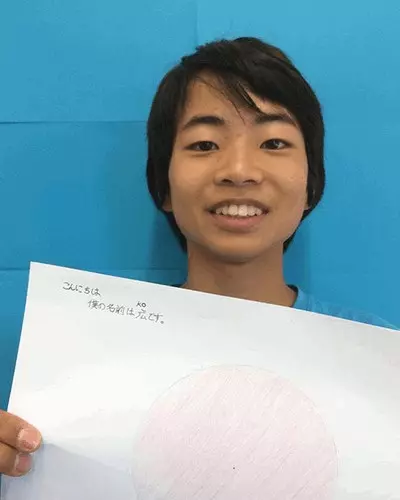 こんにちは、
KO
僕の名前は広です。